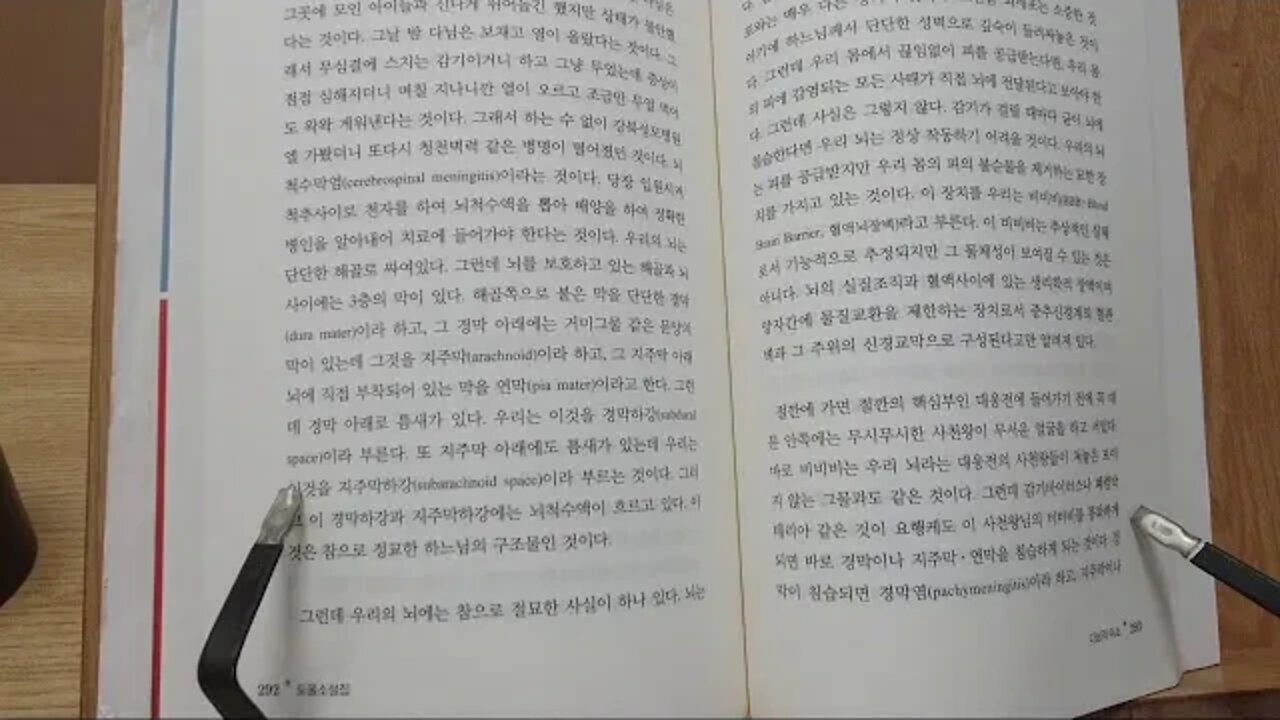 그곳에 모인 아이들과 신나게 뛰어놀긴 했지만 상태가 불안했
다는 것이다. 그날 밤 다님은 보채고 열이 올랐다는 것이다. 그
래서 무심결에 스치는 감기이거니 하고 그냥 두었는데 증상이
점점 심해지더니 며칠 지나니깐 열이 오르고 조금만 무얼 먹어
도 왁왁 게워낸다는 것이다. 그래서 하는 수 없이 강북성모병원
엘 가봤더니 또다시 청천벽력 같은 병명이 떨어졌던 것이다. 뇌
척수막염(cerebrospinal meningitis)이라는 것이다. 당장 입원시켜
척추사이로 천자를 하여 뇌척수액을 뽑아 배양을 하여 정확한
병인을 알아내어 치료에 들어가야 한다는 것이다. 우리의 뇌는
단단한 해골로 싸여있다. 그런데 뇌를 보호하고 있는 해골과 뇌
사이에는 3층의 막이 있다. 해골쪽으로 붙은 막을 단단한 경막
(dura mater)이라 하고, 그 경막 아래에는 거미그물 같은 문양의
막이 있는데 그것을 지주막(arachnoid)이라 하고, 그 지주막 아래
뇌에 직접 부착되어 있는 막을 연막(pia mater)이라고 한다. 그런
데 경막 아래로 틈새가 있다. 우리는 이것을 경막하강(subdural
space)이라 부른다. 또 지주막 아래에도 틈새가 있는데 우리는
이것을 지주막하강(subarachnoid space)이라 부르는 것이다. 그리
고 이 경막하강과 지주막하강에는 뇌척수액이 흐르고 있다. 이
것은 참으로 정교한 하느님의 구조물인 것이다.
그런데 우리의 뇌에는 참으로 절묘한 사실이 하나 있다. 뇌는
292 * 도올소설집
포와는 매우 다른
이기에 하느님께서 단단한 성벽으로 깊숙이 둘러싸놓은 것이
다. 그런데 우리 몸에서 끊임없이 피를 공급받는다면, 우리 몸
의 피에 감염되는 모든 사태가 직접 뇌에 전달된다고 보아야 한
다. 그런데 사실은 그렇지 않다. 감기가 걸릴 때마다 균이 뇌에
침습한다면 우리 뇌는 정상 작동하기 어려울 것이다. 우리의 뇌
는 피를 공급받지만 우리 몸의 피의 불순물을 제거하는 묘한 장
치를 가지고 있는 것이다. 이 장치를 우리는 비비비(BBB: Blood
Brain Barrier, 혈액뇌장벽)라고 부른다. 이 비비비는 추상적인 실체
로서 기능적으로 추정되지만 그 물체성이 보여질 수 있는 것은
아니다. 뇌의 실질조직과 혈액사이에 있는 생리학적 장벽이며
양자간에 물질교환을 제한하는 장치로서 중추신경계의 혈관
벽과 그 주위의 신경교막으로 구성된다고만 알려져 있다.
절깐에 가면 절깐의 핵심부인 대웅전에 들어가기 전에 꼭 대
문 안쪽에는 무시무시한 사천왕이 무서운 얼굴을 하고 서있다.
바로 비비비는 우리 뇌라는 대웅전의 사천왕들이 쳐놓은 보이
지 않는 그물과도 같은 것이다. 그런데 감기바이러스나 폐렴박
테리아 같은 것이 요행케도 이 사천왕님의 비비비를 통과하게
되면 바로 경막이나 지주막·연막을 침습하게 되는 것이다. 경
막이 침습되면 경막염(pachymeningitis)이라 하고, 지주막이나